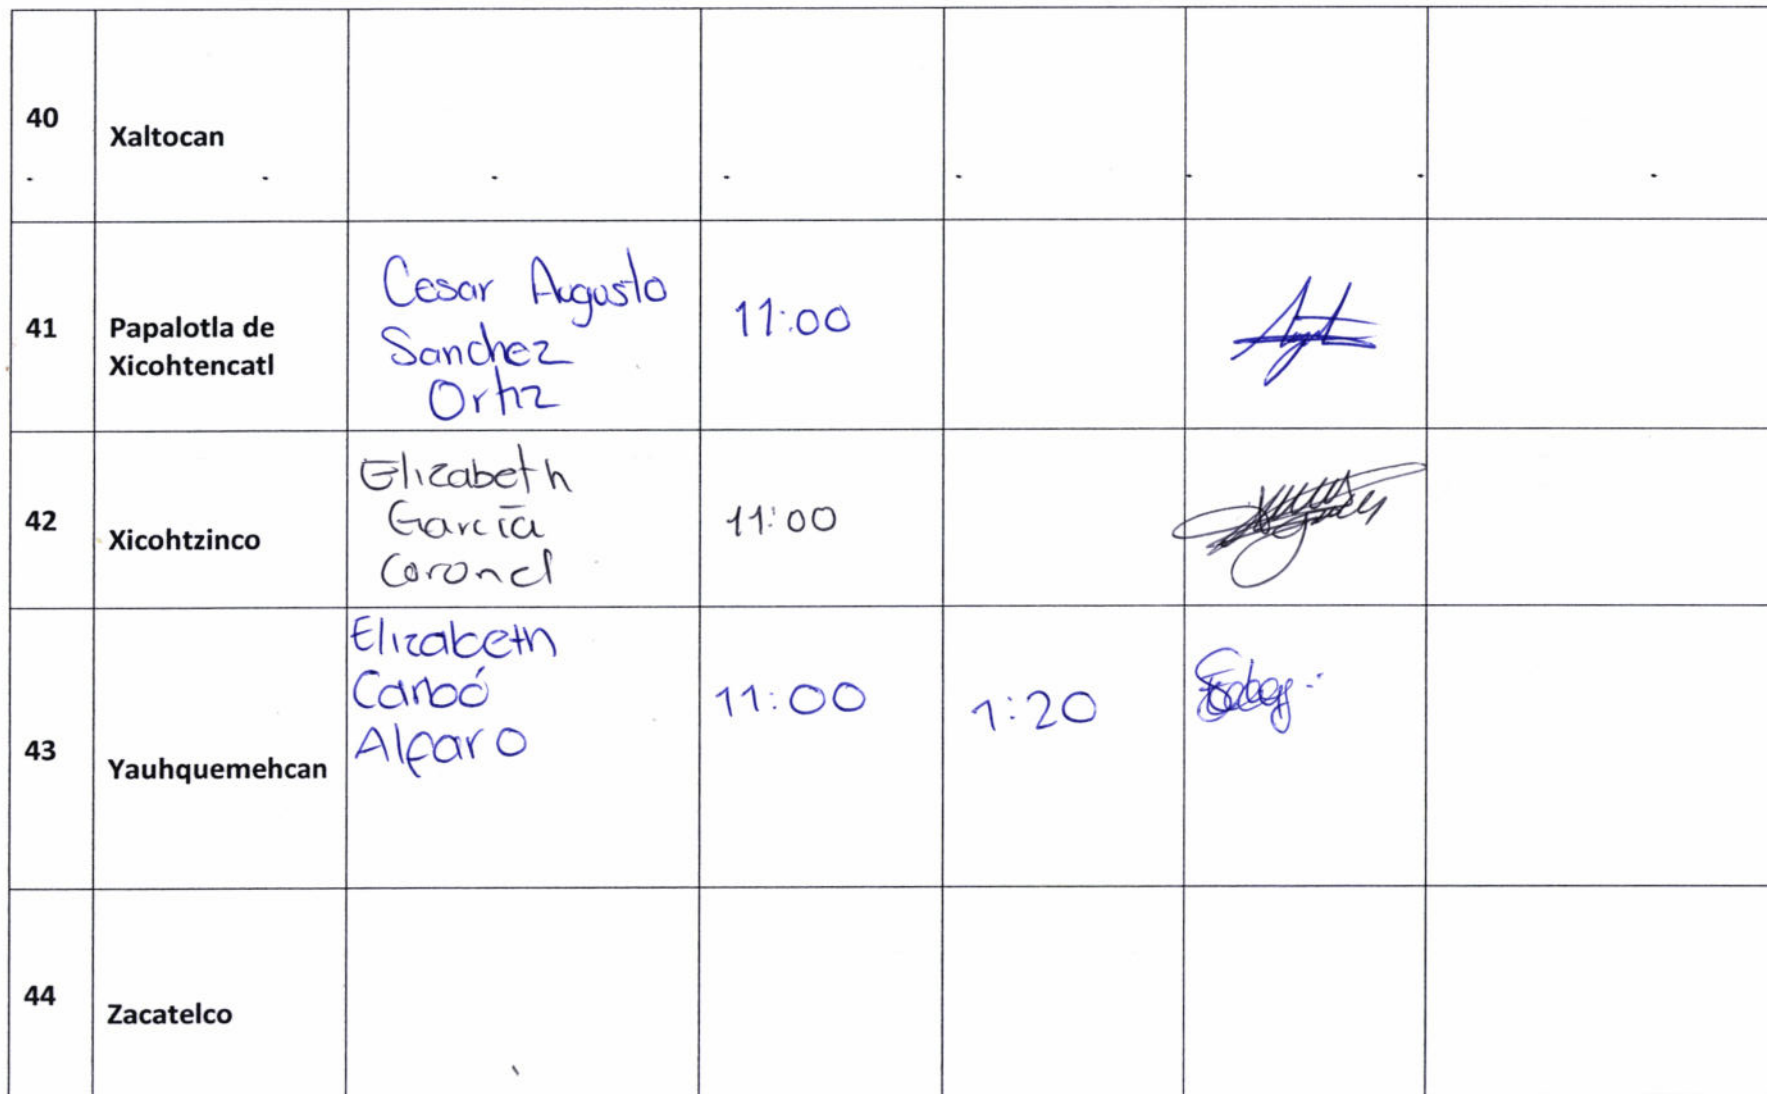 40
Xaltocan
41
Papalotla de
Xicohtencatl
Cesar Augusto
Sanchez
Ortiz
11:00
42
Xicohtzinco
Elizabeth
García
Coronel
11:00
43
Yauhquemehcan
Elizabeth
Carbó
Alfaro
11:00
1:20
44
Zacatelco